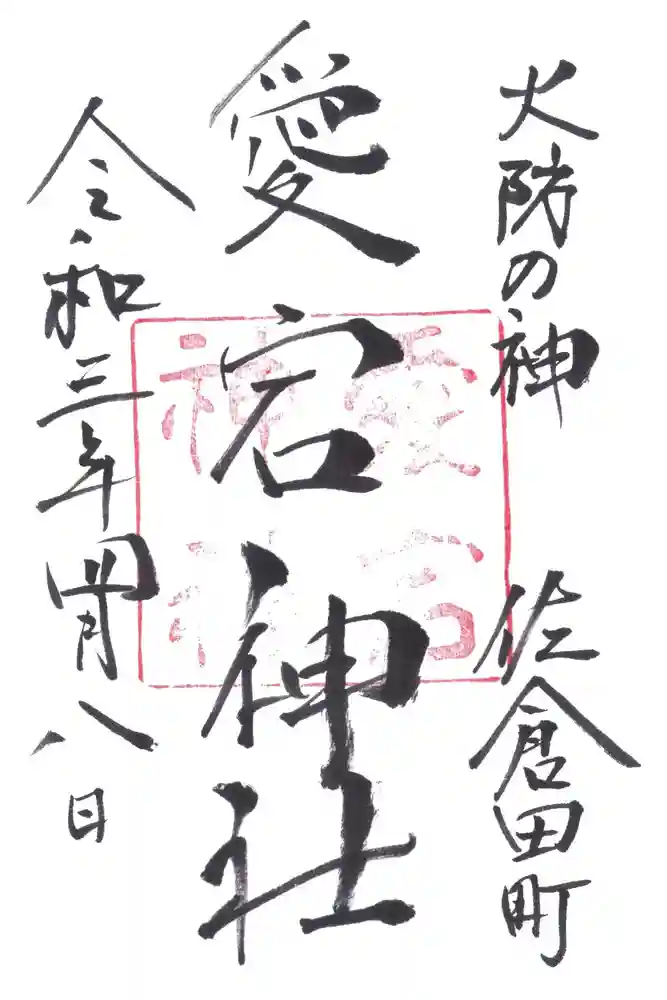 火防の神 佐倉田町
愛宕神社
令和三年四月八日
愛宕
神社